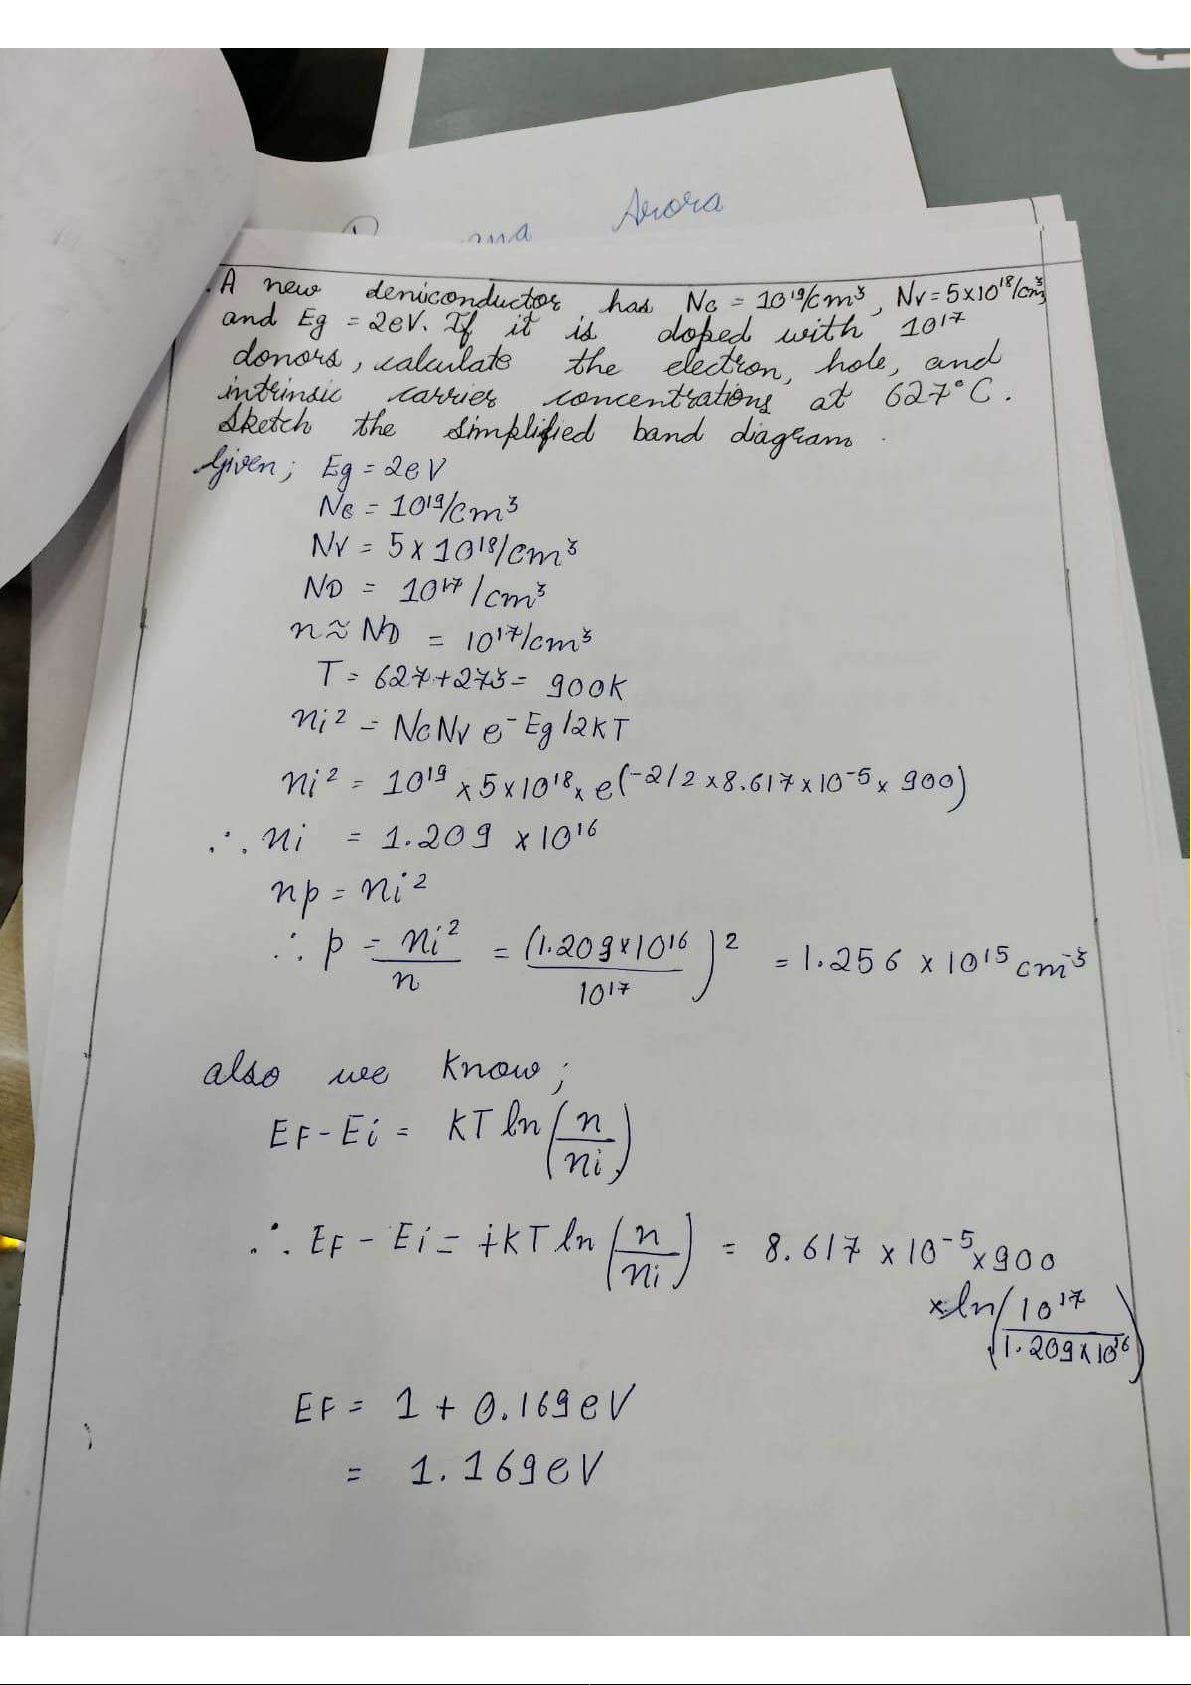 Arora
. A new deniconductor has Nc = 10¹⁹/cm³, Nv = 5x10¹⁸/cm³
and Eg = 2eV. If it is doped with 10¹⁷
donors, calculate the electron, hole, and
intrinsic carrier concentrations at 627°C.
Sketch the simplified band diagram.
Given; Eg = 2eV
Nc = 10¹⁹/cm³
Nv = 5 x 10¹⁸/cm³
ND = 10¹⁷/cm³
n ≈ ND = 10¹⁷/cm³
T = 627+273 = 900K
ni² = NcNv e^-Eg/2KT
ni² = 10¹⁹ x 5 x 10¹⁸ x e^(-2/2 x 8.617 x 10⁻⁵ x 900)
∴ ni = 1.209 x 10¹⁶
np = ni²
∴ p = ni²/n = (1.209x10¹⁶/10¹⁷)² = 1.256 x 10¹⁵ cm⁻³
also we know;
EF - Ei = KT ln(n/ni)
∴ EF - Ei = +KT ln(n/ni) = 8.617 x 10⁻⁵ x 900
x ln(10¹⁷/1.209x10¹⁶)
EF = 1 + 0.169eV
= 1.169eV